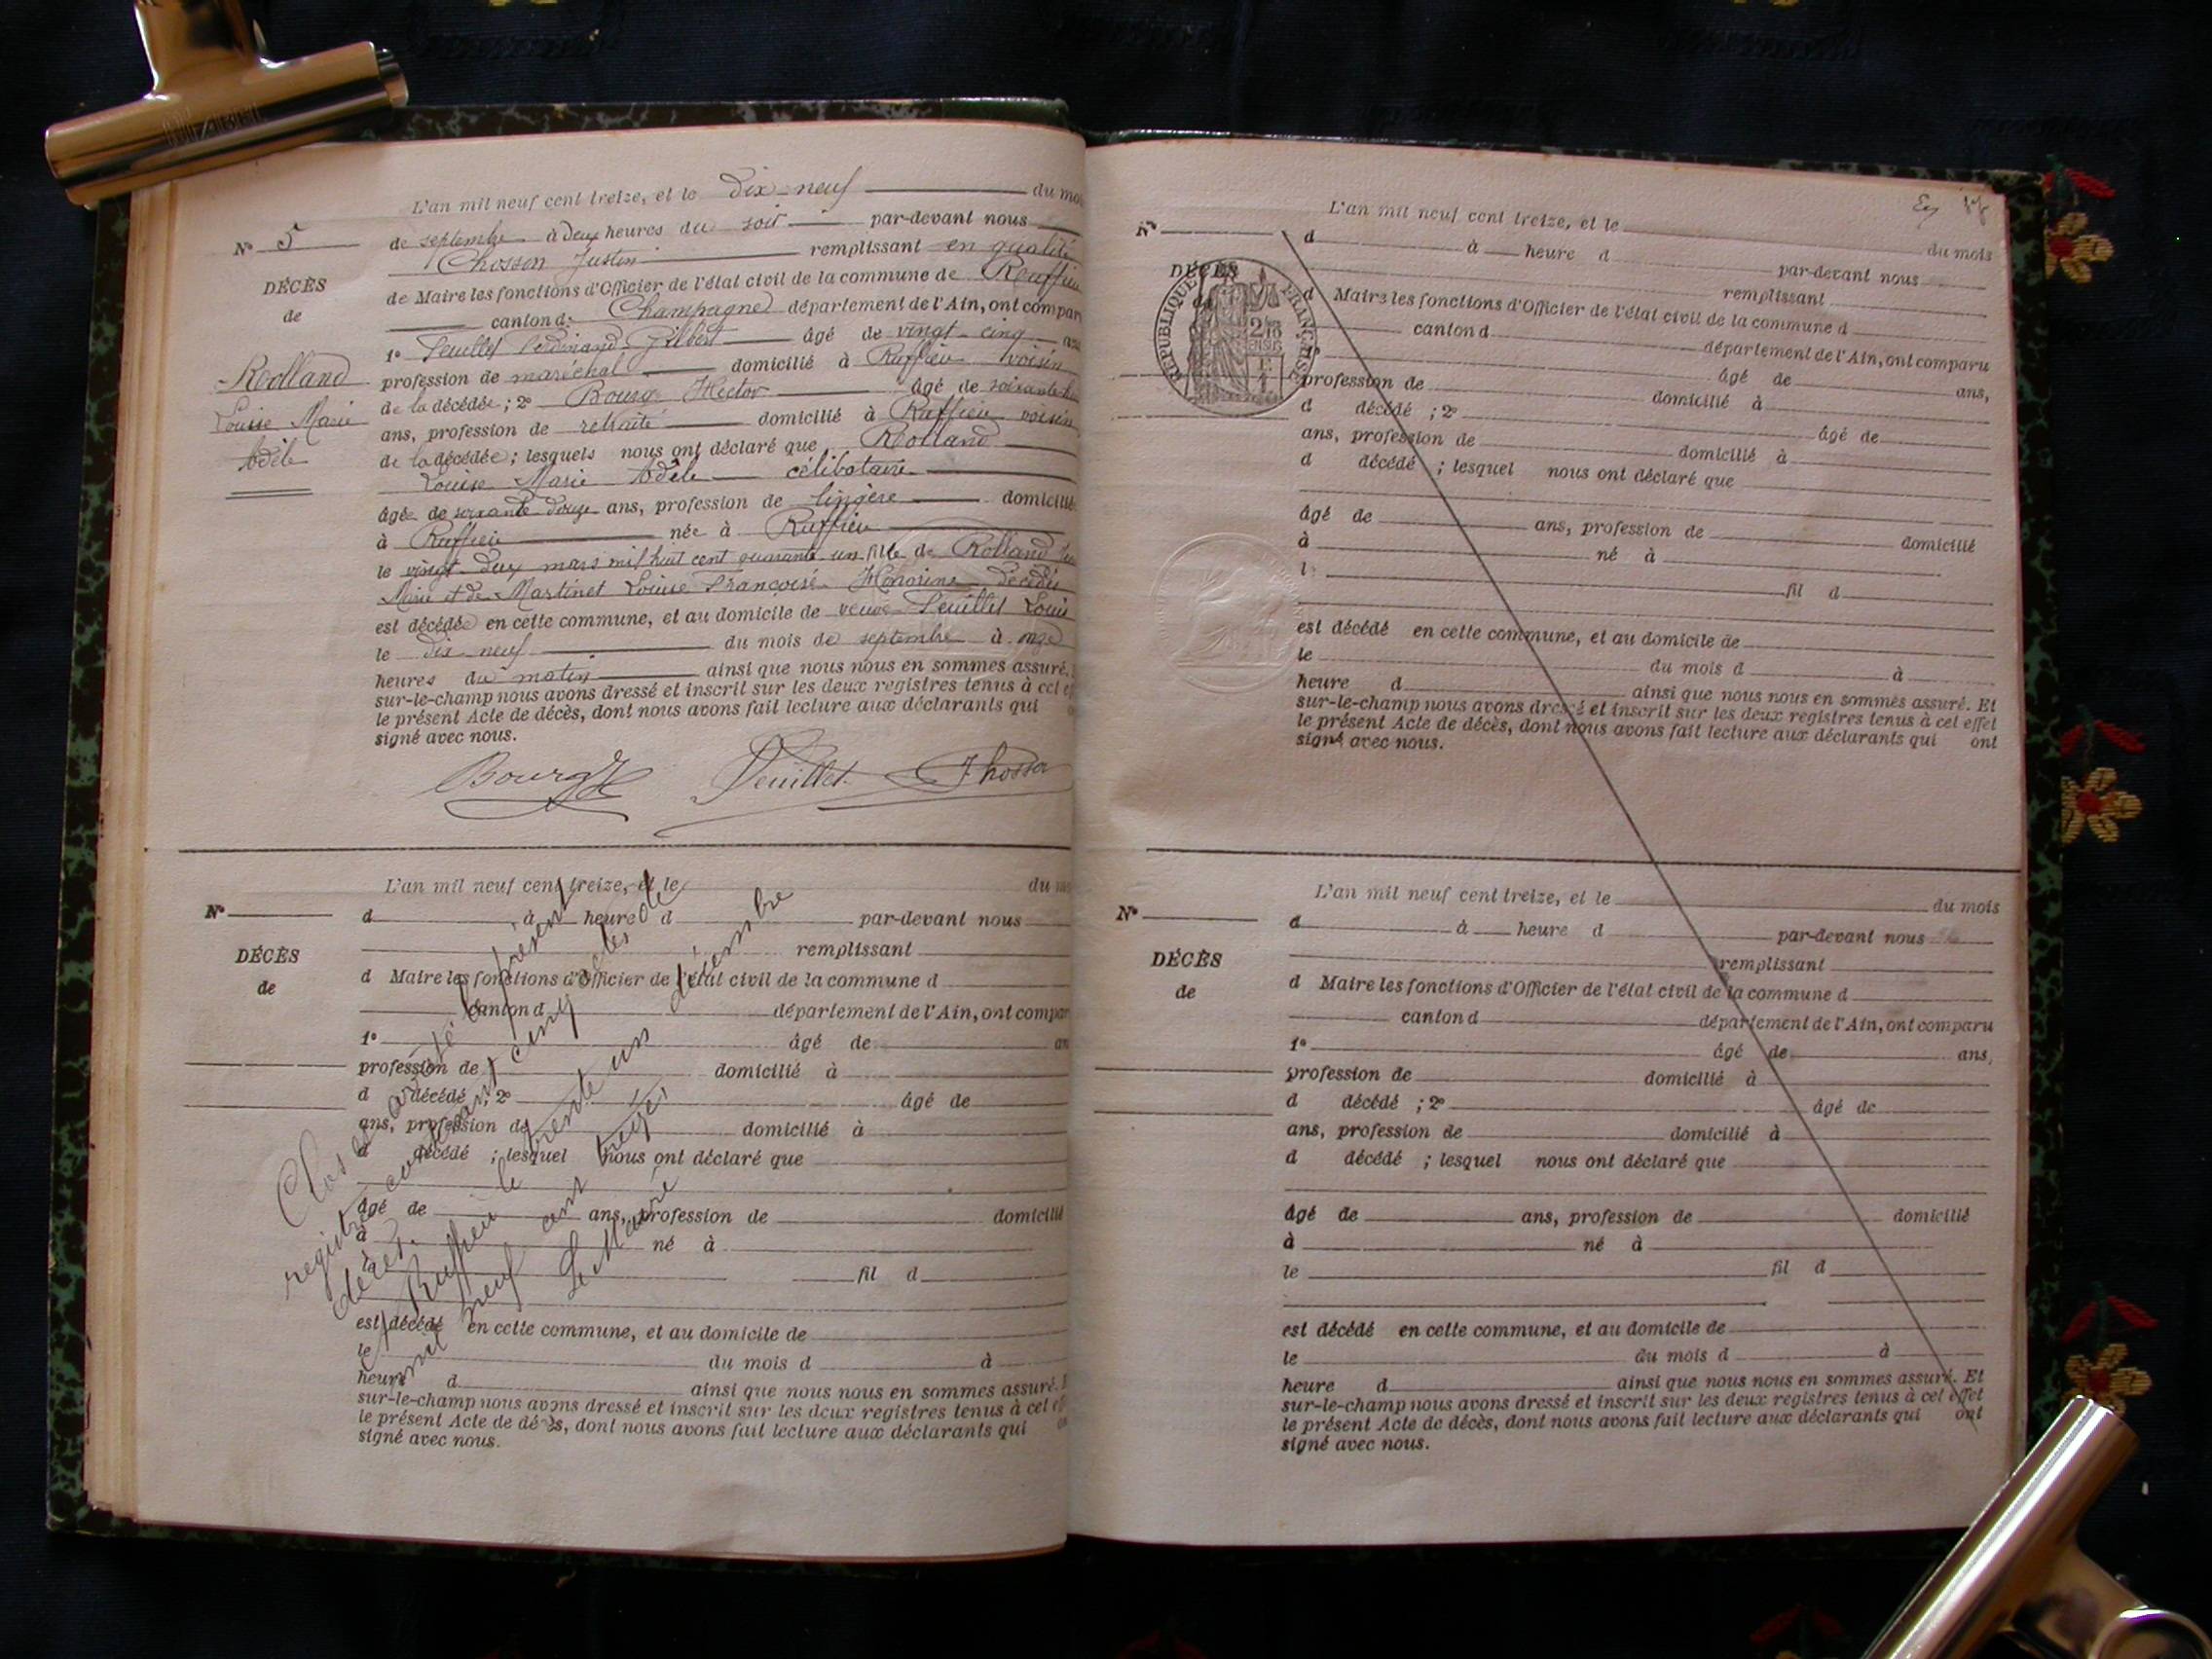 L'an mil neuf cent treize, et le dix-neuf du mois
Nº 5
de septembre à deux heures du soir par-devant nous
Chosson Justin remplissant en qualité
DÉCÈS
de Maire les fonctions d'Officier de l'état civil de la commune de Ruffieu
de
canton de Champagne département de l'Ain, ont comparu
1º Feuillet Ferdinand Gilbert âgé de vingt-cinq ans
Rolland
profession de maréchal domicilié à Ruffieu voisin
de la décédée ; 2º Bourg Hector âgé de soixante
Louise Marie
ans, profession de retraité domicilié à Ruffieu voisin
Adèle
de la décédée ; lesquels nous ont déclaré que Rolland
Louise Marie Adèle célibataire
âgée de soixante douze ans, profession de lingère domiciliée
à Ruffieu née à Ruffieu
le vingt-deux mars mil huit cent quarante un fille de Rolland
Marie et de Martinet Louise Françoise Honorine décédés
est décédée en cette commune, et au domicile de veuve Feuillet Louis
le dix neuf du mois de septembre à onze
heures du matin ainsi que nous nous en sommes assuré.
sur-le-champ nous avons dressé et inscrit sur les deux registres tenus à cet
le présent Acte de décès, dont nous avons fait lecture aux déclarants qui
signé avec nous.
Bourg H Feuillet J Chosson
L'an mil neuf cent treize, et le du
Nº
d à heure d par-devant nous
remplissant
DÉCÈS
d Maire les fonctions d'Officier de l'état civil de la commune d
de
canton d département de l'Ain, ont compar
1º âgé de an
profession de domicilié à
d décédé ; 2º âgé de
ans, profession de domicilié à
d décédé ; lesquel nous ont déclaré que
âgé de ans, profession de domicilié
à né à
le fil d
est décédé en cette commune, et au domicile de
le du mois d à
heure d ainsi que nous nous en sommes assuré.
sur-le-champ nous avons dressé et inscrit sur les deux registres tenus à cet
le présent Acte de décès, dont nous avons fait lecture aux déclarants qui
signé avec nous.
Clos et arrêté le présent
registre contenant cinq actes de
décès.
Ruffieu le trente un décembre
mil neuf cent treize
Le Maire
L'an mil neuf cent treize, et le du mois
Nº
d à heure d par-devant nous
DÉCÈS
remplissant
d Maire les fonctions d'Officier de l'état civil de la commune d
canton d département de l'Ain, ont comparu
RÉPUBLIQUE FRANÇAISE
âgé de ans,
profession de domicilié à
d décédé ; 2º âgé de
ans, profession de domicilié à
d décédé ; lesquel nous ont déclaré que
âgé de ans, profession de domicilié
à né à
l
fil d
est décédé en cette commune, et au domicile de
le du mois d à
heure d ainsi que nous nous en sommes assuré. Et
sur-le-champ nous avons dressé et inscrit sur les deux registres tenus à cet effet
le présent Acte de décès, dont nous avons fait lecture aux déclarants qui ont
signé avec nous.
L'an mil neuf cent treize, et le du mois
Nº
d à heure d par-devant nous
remplissant
DÉCÈS
d Maire les fonctions d'Officier de l'état civil de la commune d
de
canton d département de l'Ain, ont comparu
1º âgé de ans,
profession de domicilié à
d décédé ; 2º âgé de
ans, profession de domicilié à
d décédé ; lesquel nous ont déclaré que
âgé de ans, profession de domicilié
à né à
le fil d
est décédé en cette commune, et au domicile de
le du mois d à
heure d ainsi que nous nous en sommes assuré. Et
sur-le-champ nous avons dressé et inscrit sur les deux registres tenus à cet effet
le présent Acte de décès, dont nous avons fait lecture aux déclarants qui ont
signé avec nous.